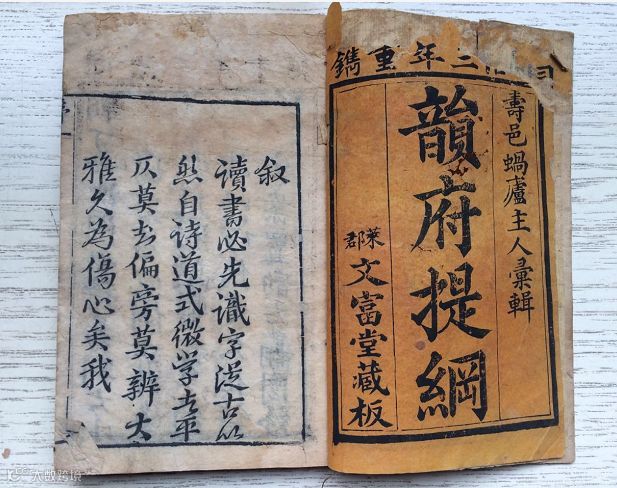 年重鐫
壽邑蝸廬主人彙輯
韻府提綱
萊郡文富堂藏板
叙
讀書必先識字從古以
然自诗道式微学士平
仄莫偏旁莫辨大
雅久為傷心矣我
大数跨境